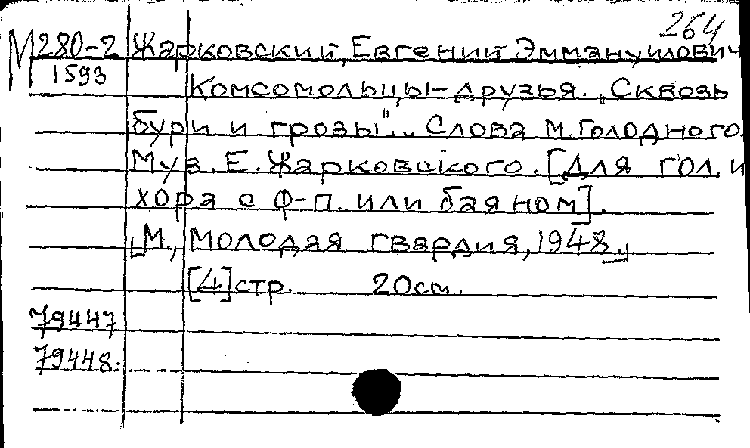 264
М 280-2 Жарковский, Евгений Эммануилович
1593
Комсомольцы-друзья. „Сквозь
бури и грозы"... Слова М. Голодного.
Муз. Е. Жарковского. [Для гол. и
хора с ф-п. или баяном].
[М., Молодая гвардия, 1948.]
[4] стр. 20 см.
79447
79448.